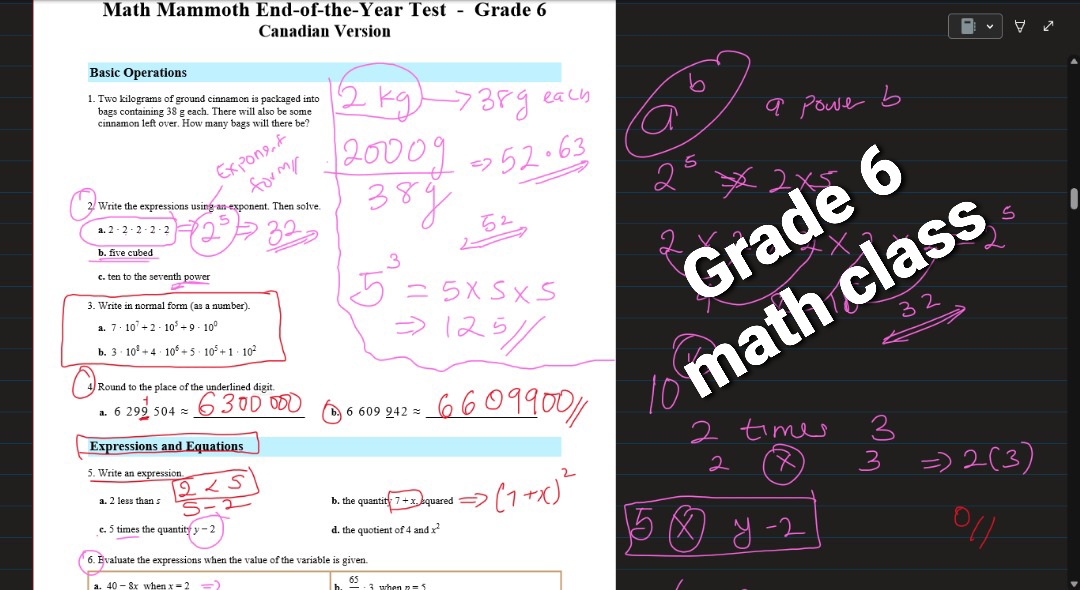 Math Mammoth End-of-the-Year Test - Grade 6
Canadian Version
Basic Operations
1. Two kilograms of ground cinnamon is packaged into
bags containing 38 g each. There will also be some
cinnamon left over. How many bags will there be?
2 kg → 38g each
2000g
38g
⇒ 52.63
52
2. Write the expressions using an exponent. Then solve.
a. 2 · 2 · 2 · 2 · 2
⇒ 2⁵ ⇒ 32
b. five cubed
c. ten to the seventh power
5³ = 5 x 5 x 5
⇒ 125//
3. Write in normal form (as a number).
a. 7 · 10⁷ + 2 · 10⁵ + 9 · 10⁰
b. 3 · 10⁸ + 4 · 10⁶ + 5 · 10⁵ + 1 · 10²
4. Round to the place of the underlined digit.
a. 6 299 504 ≈ 6300 000
b. 6 609 942 ≈ 6609900//
Expressions and Equations
5. Write an expression.
2 < 5
a. 2 less than s
5 - 2
b. the quantity 7 + x, squared ⇒ (7+x)²
c. 5 times the quantity y − 2
d. the quotient of 4 and x²
6. Evaluate the expressions when the value of the variable is given.
a. 40 − 8x when x = 2 ⇒
b. 65 · 3 when n = 5
a b
a power b
2⁵ 2x5
32
10
2 times 3
2 x 3 ⇒ 2(3)
5 x y - 2
0//
Grade 6
math class